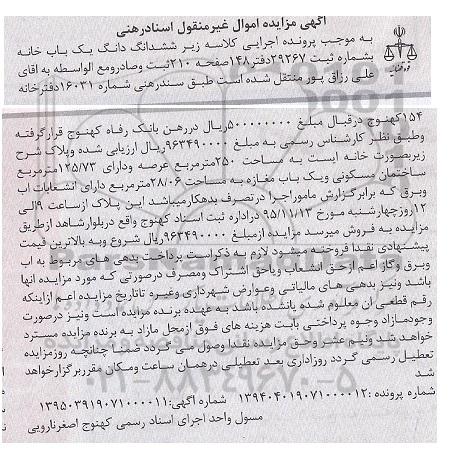 آگهی مزایده اموال غیرمنقول اسنادرهنی
به موجب پرونده اجرایی کلاسه زیر ششدانگ دانگ یک باب خانه
بشماره ثبت ۲۹۲۶۷دفتر۱۴۸صفحه ۲۱۰ثبت وصادرومع الواسطه به اقای
علی رزاق پور منتقل شده است طبق سندرهنی شماره ۱۶۰۳۱دفترخانه
۱۵۴کهنوج درقبال مبلغ ۵۰۰۰۰۰۰۰۰ریال دررهن بانک رفاه کهنوج قرارگرفته
وطبق نظر کارشناس رسمی به مبلغ ۹۶۳۴۹۰۰۰۰ریال ارزیابی شده وپلاک شرح
زیربصورت خانه ایست به مساحت ۲۵۰مترمربع عرصه ودارای ۱۲۵/۷۳مترمربع
ساختمان مسکونی ویک باب مغازه به مساحت ۲۸/۰۶مترمربع دارای انشعابات اب
وبرق که برابرگزارش ماموراجرا درتصرف بدهکارمیباشد این پلاک ازساعت ۹الی
۱۲روزچهارشنبه مورخ ۹۵/۱۱/۱۳ دراداره ثبت اسناد کهنوج واقع دربلوارشاهد ازطریق
مزایده به فروش میرسد مزایده ازمبلغ ۹۶۳۴۹۰۰۰۰ریال شروع وبه بالاترین قیمت
پیشنهادی نقدا فروخته میشود لازم به ذکراست پرداخت بدهی های مربوط به اب
وبرق وگاز اعم ازحق انشعاب وياحق اشتراک ومصرف درصورتی که مورد مزایده انها
باشد ونیز بدهی های مالیاتی وعوارض شهرداری وغیره تاتاریخ مزایده اعم ازاینکه
رقم قطعی ان معلوم شده یانشده باشد به عهده برنده مزایده است ونیز درصورت
وجودمازاد وجوه پرداختی بابت هزینه های فوق ازمحل مازاد به برنده مزایده مسترد
خواهد شد ونیم عشر وحق مزایده نقدا وصول می گردد ضمنا چنانچه روزمزایده
تعطیل رسمی گردد روزاداری بعد تعطیلی درهمان ساعت ومکان مقرربرگزارخواهد
شد
شماره پرونده :۱۳۹۴۰۴۰۱۹۰۷۱۰۰۰۰۱۲ شماره اگهی:۱۳۹۵۰۳۹۱۹۰۷۱۰۰۰۰۱۱
مسول واحد اجرای اسناد رسمی کهنوج اصغرنارویی
۰۲۱-۸۸۳۴۹۶۷۰-۵